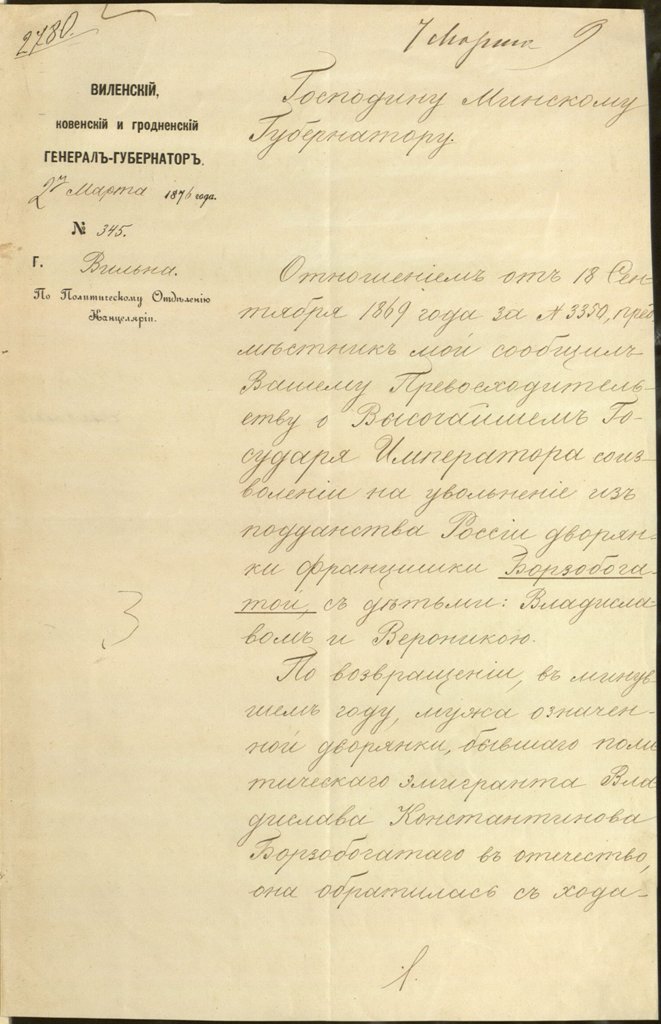 2780.
7 Марта 9
ВИЛЕНСКІЙ,
КОВЕНСКІЙ И ГРОДНЕНСКІЙ
ГЕНЕРАЛЪ-ГУБЕРНАТОРЪ.
27 Марта 1876 года.
№ 345.
Г. Вильна.
По Политическому Отдѣленію
Канцеляріи.
Господину Минскому
Губернатору.
Отношеніемъ отъ 18 Сен-
тября 1869 года за № 3350, пред
мѣстникъ мой сообщилъ
Вашему Превосходитель-
ству о Высочайшемъ Го-
сударя Императора соиз-
воленіи на увольненіе изъ
подданства Россіи дворян-
ки Францишки Борзобога-
той, съ дѣтьми: Владисла-
вомъ и Вероникою.
По возвращеніи, въ минув-
шемъ году, мужа означен-
ной дворянки, бывшаго поли
тическаго эмигранта Вла
дислава Константинова
Борзобогатаго въ отечество,
она обратилась съ хода-
3